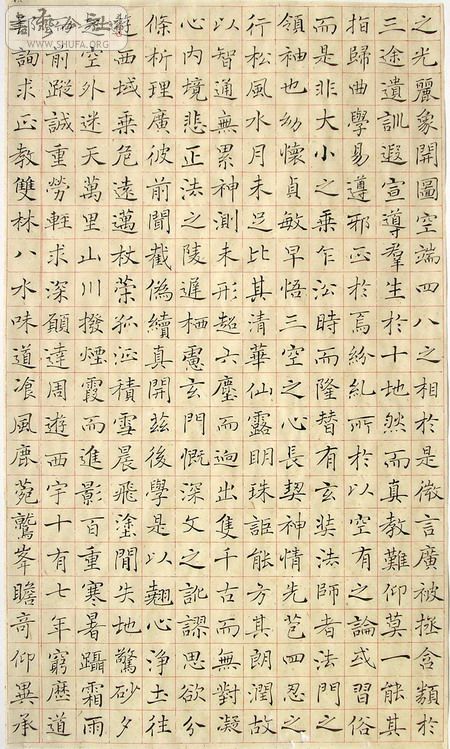 之光麗象開圖空端四八之相於是微言廣被拯含類於
三途遺訓遐宣導羣生於十地然而真教難仰莫一能其
指歸曲學易遵邪正於焉紛糺所於以空有之論或習俗
而是非大小之乘乍沿時而隆替有玄奘法師者法門之
領袖也幼懷貞敏早悟三空之心長契神情先苞四忍之
行松風水月未足比其清華仙露明珠詎能方其朗潤故
以智通無累神測未形超六塵而迥出隻千古而無對凝
心內境悲正法之陵遲栖慮玄門慨深文之訛謬思欲分
條析理廣彼前聞截偽續真開茲後學是以翹心淨土往
遊西域乘危遠邁杖策孤征積雪晨飛塗閒失地驚砂夕
空外迷天萬里山川撥煙霞而進影百重寒暑躡霜雨
而前蹤誠重勞輕求深願達周遊西宇十有七年窮歷道
詢求正教雙林八水味道飡風鹿菀鷲峯瞻奇仰異承
WWW.SHUFA.ORG